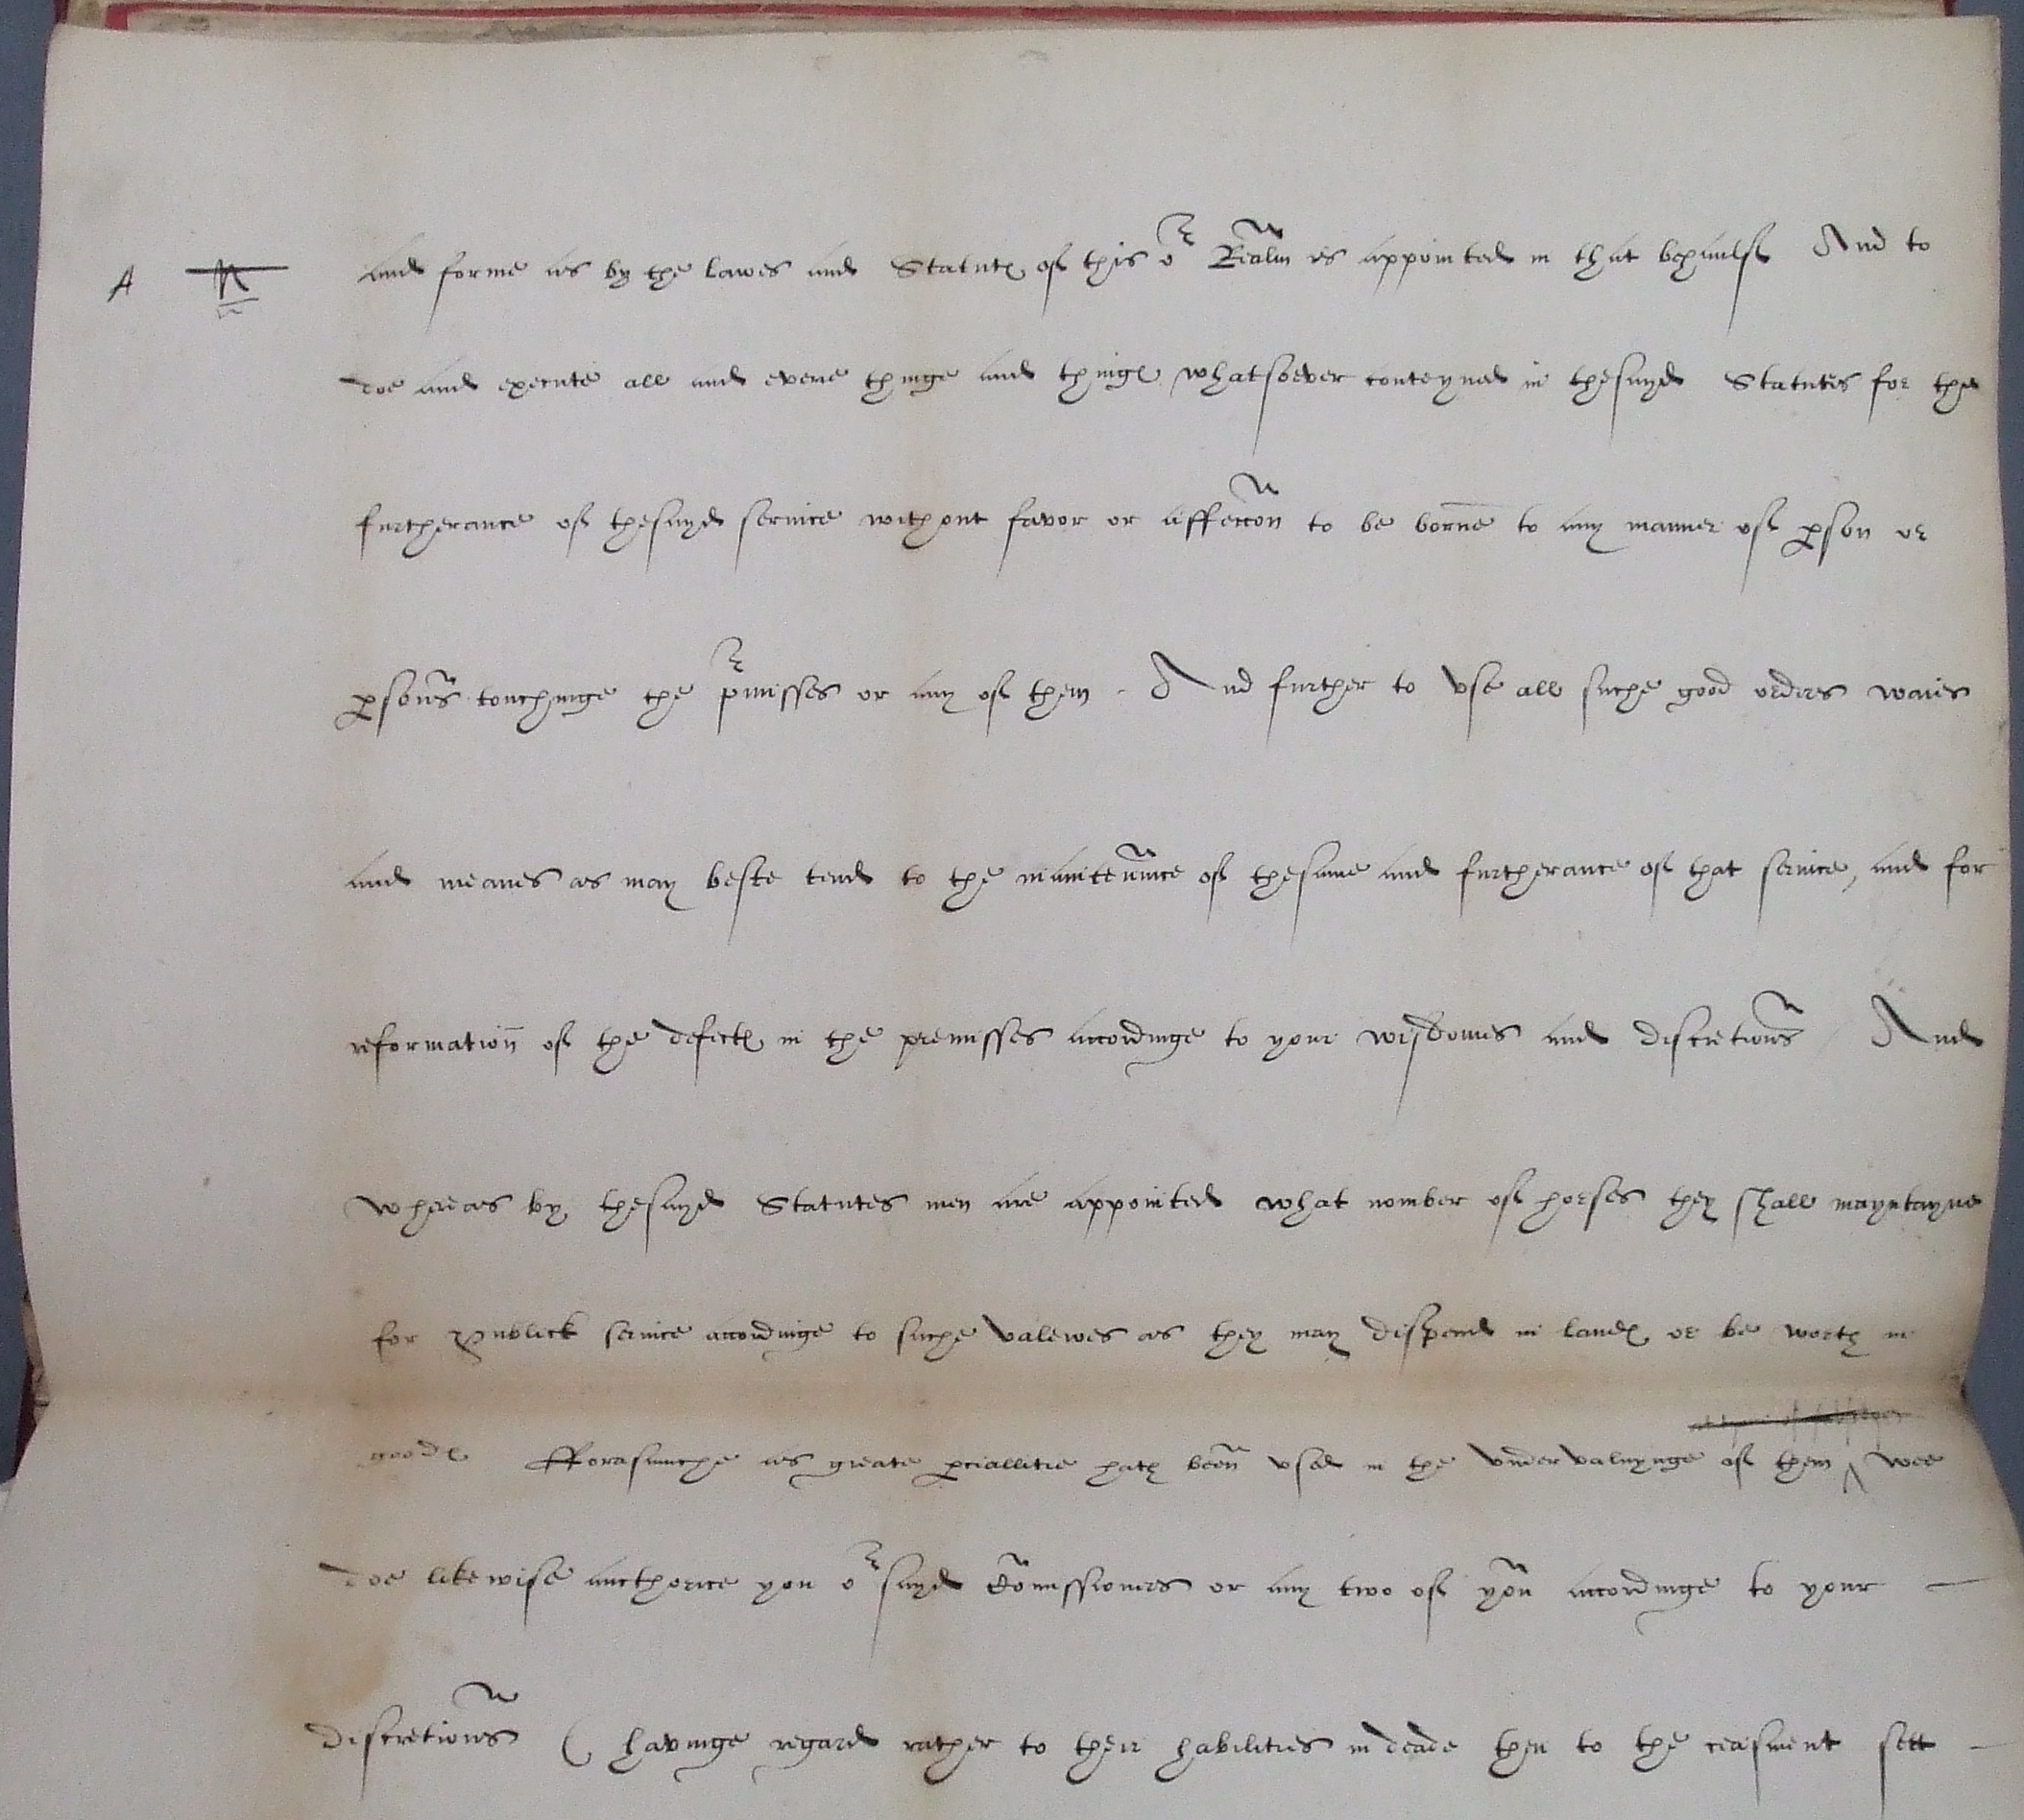 A
and forme as by the lawes and Statutes of this or Realm is appointed in that behaulfe And to
doe and execute all and everie thinge and thinges whatsoever conteyned in thesayd Statutes for the
furtherance of thesayd service without favor or affeccon to be borne to any manner of pson or
psons touchinge the pmisses or any of them. And further to use all suche good orders waies
and meanes as may beste tend to the maintenunce of thesame and furtherance of that service, and for
reformation of the defectes in the premisses accordinge to your wisdomes and discretions And
whereas by thesayd Statutes men are appointed what nomber of horses they shall mayntayne
for publick service accordinge to suche valewes as they may dispend in landes or be worth in
goodes Fforasmuche as greate pciallitie hath been used in the undervaluynge of them ^ wee
doe likewise aucthorice you or sayd Comissioners or any two of you accordinge to your
discretions ( havinge regard rather to their habilities in deade then to the ceasment sett